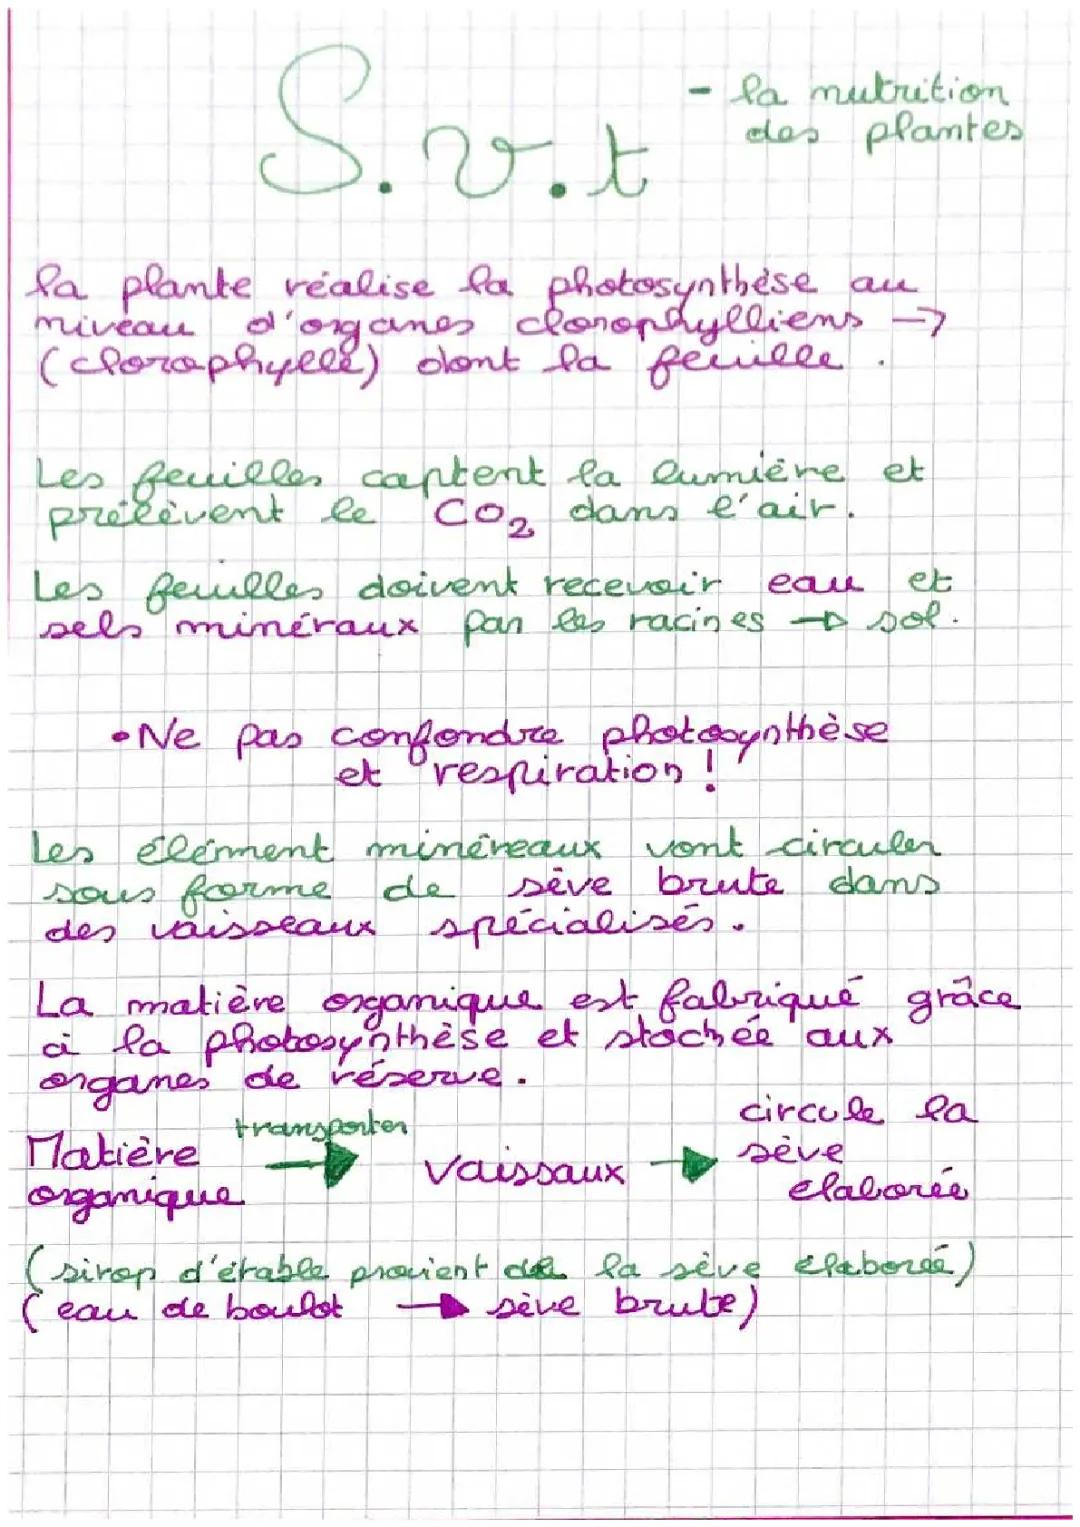 S.v.t
- la nutrition
des plantes
la plante réalise la photosynthèse au
niveau d'organes clorophylliens →
(clorophylle) dont la feuille.
Les feuilles captent la lumière et
prélèvent le CO₂ dans l'air.
Les feuilles doivent recevoir eau et
sels minéraux par les racines → sol.
• Ne pas confondre photosynthèse
et respiration !
Les élément minéreaux vont circuler
sous forme de sève brute dans
des vaisseaux spécialisés.
La matière organique est fabriqué grâce
à la photosynthèse et stockée aux
organes de réserve.
Matière
organique
transporter
→
vaissaux
→
circule la
sève
elaborée
(sirop d'érable provient de la sève élaboreé)
(eau de boulot → sève brute)